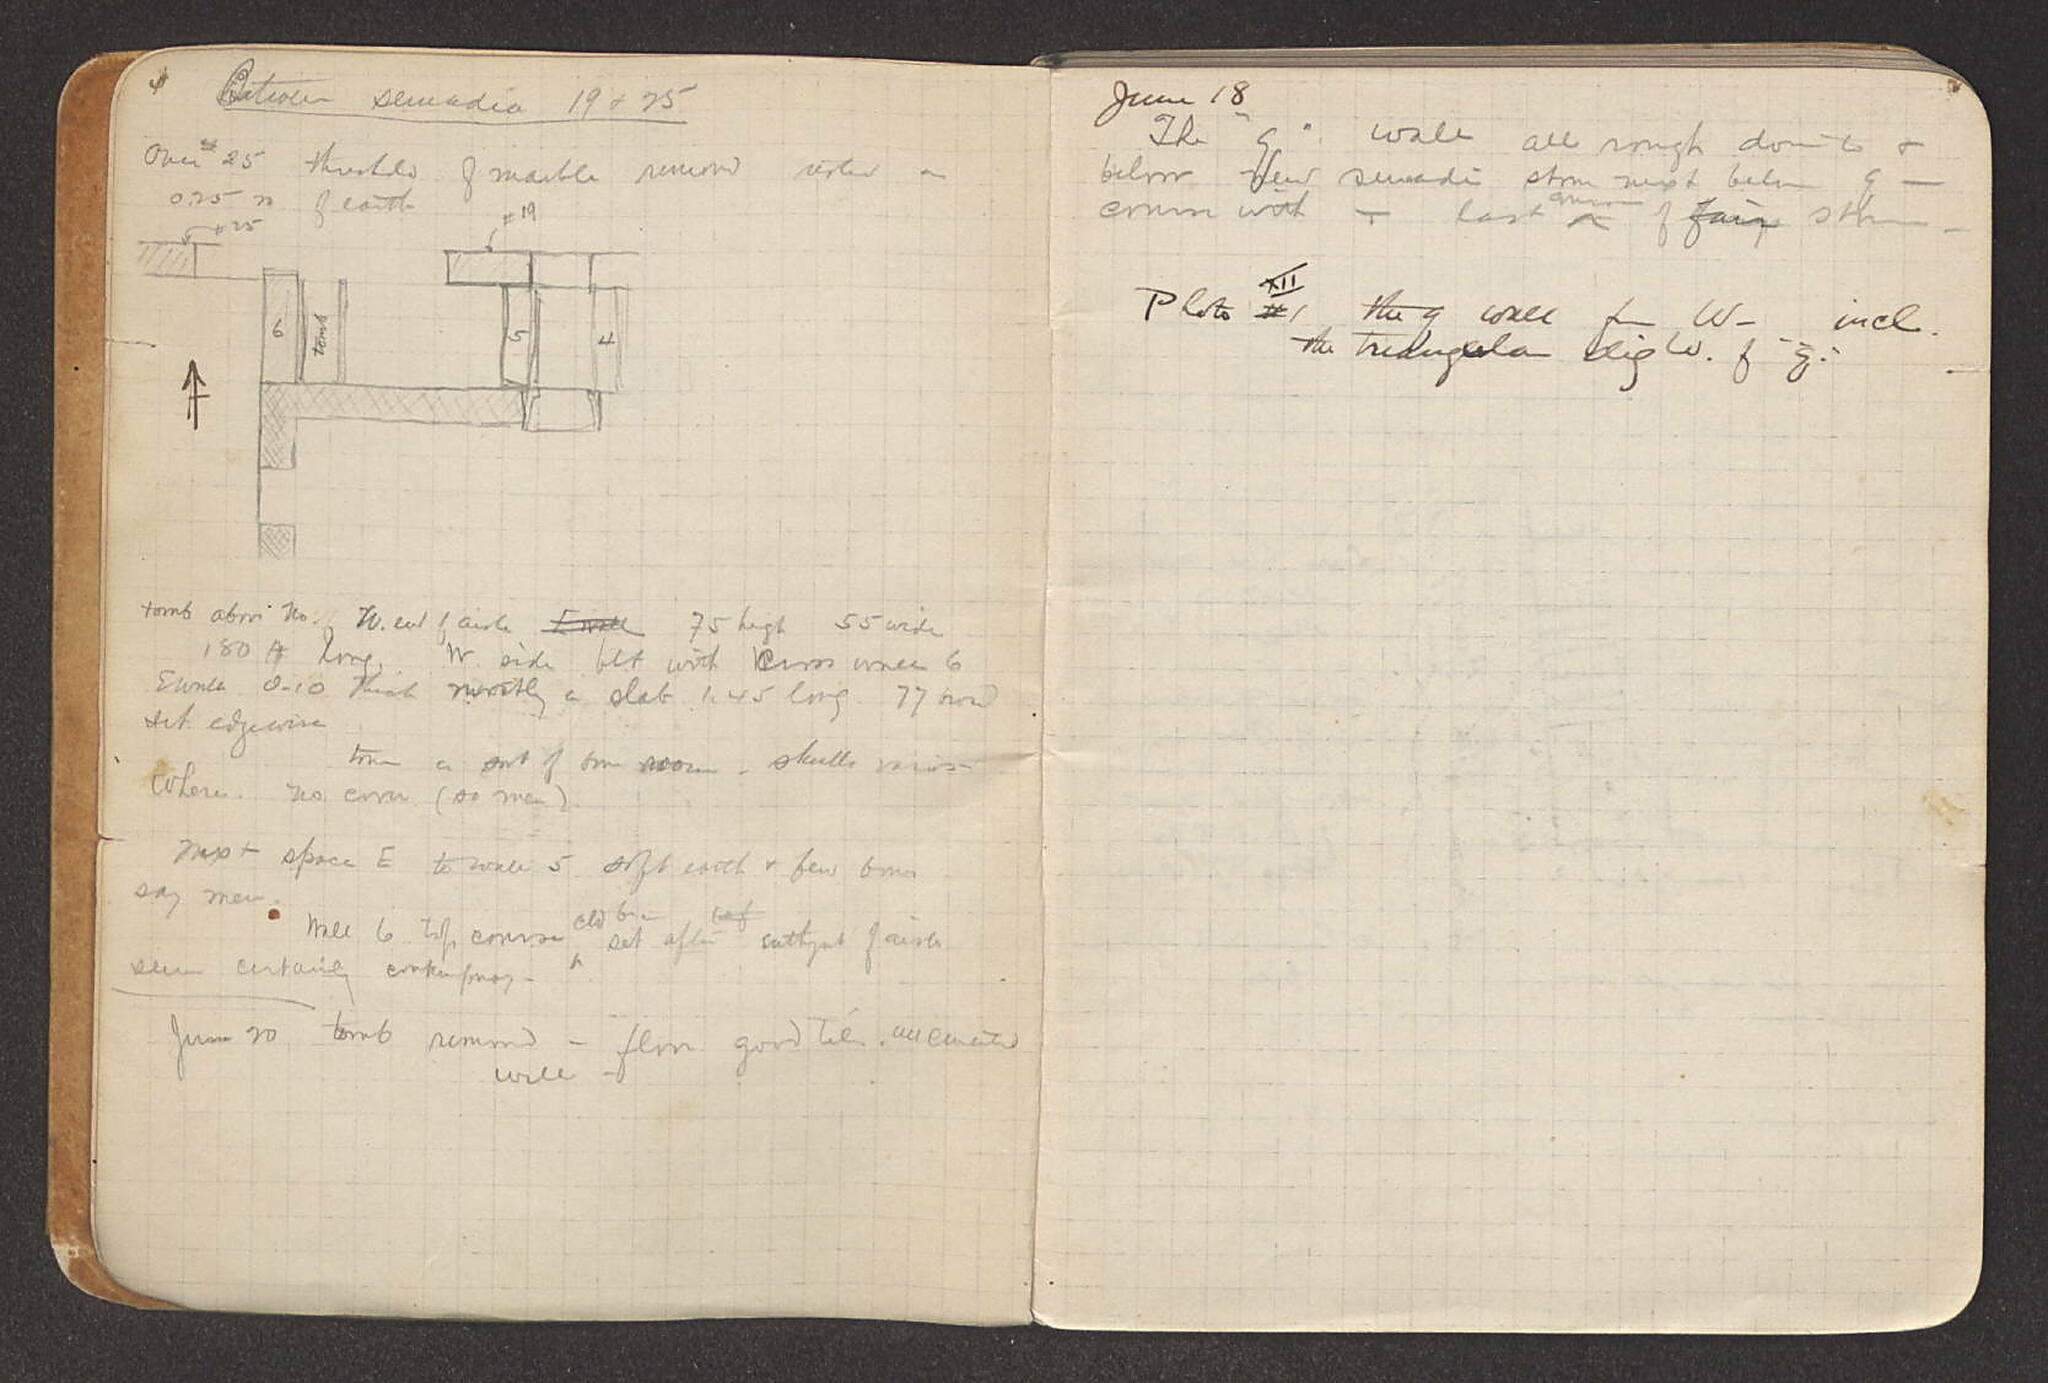 Between semeadia 19 + 25
Over # 25 threshold of marble removed rested on
0.25 m of earth
# 25
# 19
6
tomb
5
4
tomb above No. W. end of aisle E wall 75 high 55 wide
180 long. W. side blt with cross wall 6
E wall 0.10 thick mostly a slab 1.45 long. 77 broad
set edgewise
tomb a sort of bone room - skulls
where. No cover (so men)
Next space E to wall 5 soft earth + few bones
say men.
Wall 6 top course set after of aisle
seem certainly contemporary -
June 20 tomb removed - floor good tile. all cemented
well -
June 18
The "g" wall all rough down to +
below new semeadia stone next below g —
course with last course of stone -
Photo XII #1 the g wall fr W - incl.
the triangular dig W. of "g".